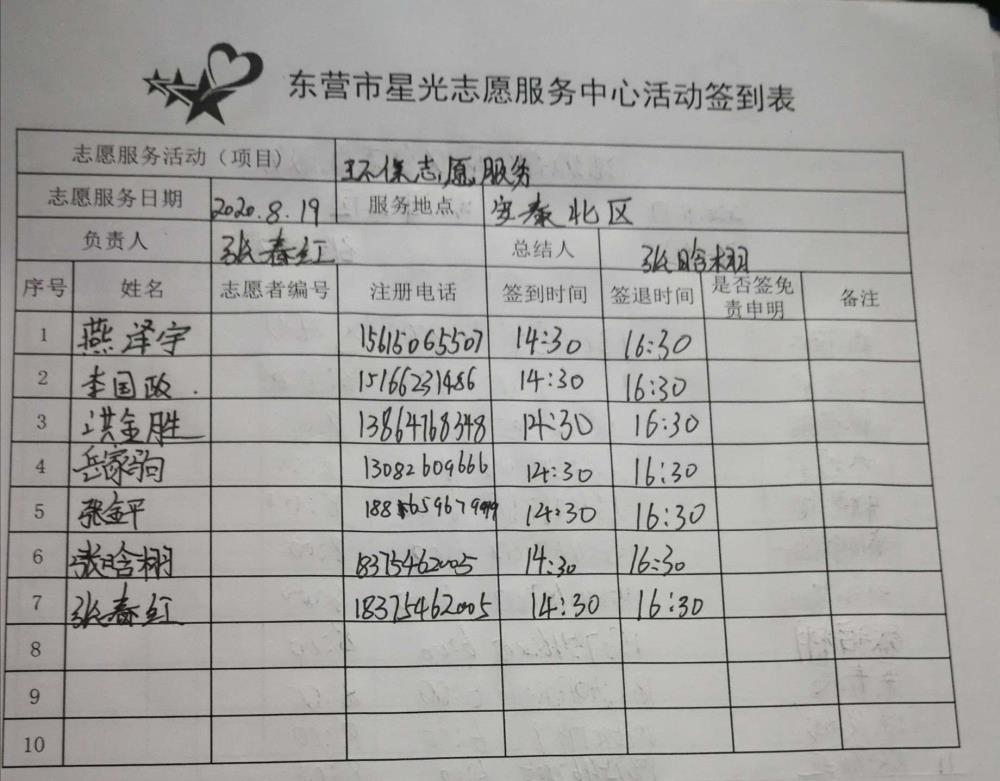 东营市星光志愿服务中心活动签到表
志愿服务活动（项目） 环保志愿服务
志愿服务日期 2020.8.19 服务地点 安泰北区
负责人 张春红 总结人 张晗栩
序号 姓名 志愿者编号 注册电话 签到时间 签退时间 是否签免责申明 备注
1 燕泽宇 15615065507 14:30 16:30
2 李国政 15166231486 14:30 16:30
3 洪金胜 13864768348 14:30 16:30
4 岳家驹 13082609666 14:30 16:30
5 张金平 14:30 16:30
6 张晗栩 18375462005 14:30 16:30
7 张春红 18375462005 14:30 16:30
8
9
10